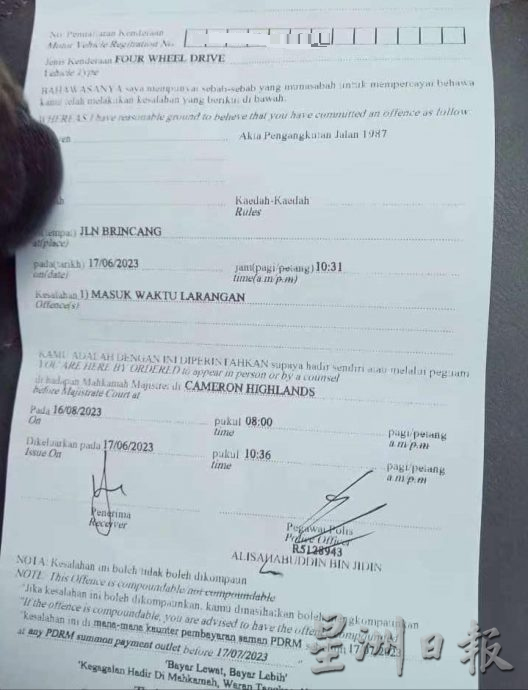 No. Pendaftaran Kenderaan
Motor Vehicle Registration No.
Jenis Kenderaan FOUR WHEEL DRIVE
Vehicle Type
BAHAWASANYA saya mempunyai sebab-sebab yang munasabah untuk mempercayai bahawa
kamu telah melakukan kesalahan yang berikut di bawah.
WHEREAS I have reasonable ground to believe that you have committed an offence as follow:
Akta Pengangkutan Jalan 1987
Kaedah-Kaedah
Rules
JLN BRINCANG
at(place)
pada(tarikh) 17/06/2023 jam(pagi/petang) 10:31
on(date) time(a.m/p.m)
Kesalahan 1) MASUK WAKTU LARANGAN
Offence(s)
KAMU ADALAH DENGAN INI DIPERINTAHKAN supaya hadir sendiri atau melalui peguam
YOU ARE HERE BY ORDERED to appear in person or by a counsel
di hadapan Mahkamah Majistret di CAMERON HIGHLANDS
before Majistrate Court at
Pada 16/08/2023 pukul 08:00 pagi/petang
On time a.m/p.m
Dikeluarkan pada 17/06/2023 pukul 10:36 pagi/petang
Issue On time a.m/p.m
Penerima Pegawai Polis
Receiver Police Officer
R5128943
ALISAHABUDDIN BIN JIDIN
NOTA: Kesalahan ini boleh/tidak boleh dikompaun
NOTE: This Offence is compoundable/not compoundable
"Jika kesalahan ini boleh dikompaunkan, kamu dinasihatkan boleh mengkompaunkan
"If the offence is compoundable, you are advised to have the offence compounded
kesalahan ini di mana-mana kaunter pembayaran saman PDRM 17/07/2023
at any PDRM summon payment outlet before 17/07/2023
'Bayar Lewat, Bayar Lebih'
'Kegagalan Hadir Di Mahkamah, Waran
星洲日报